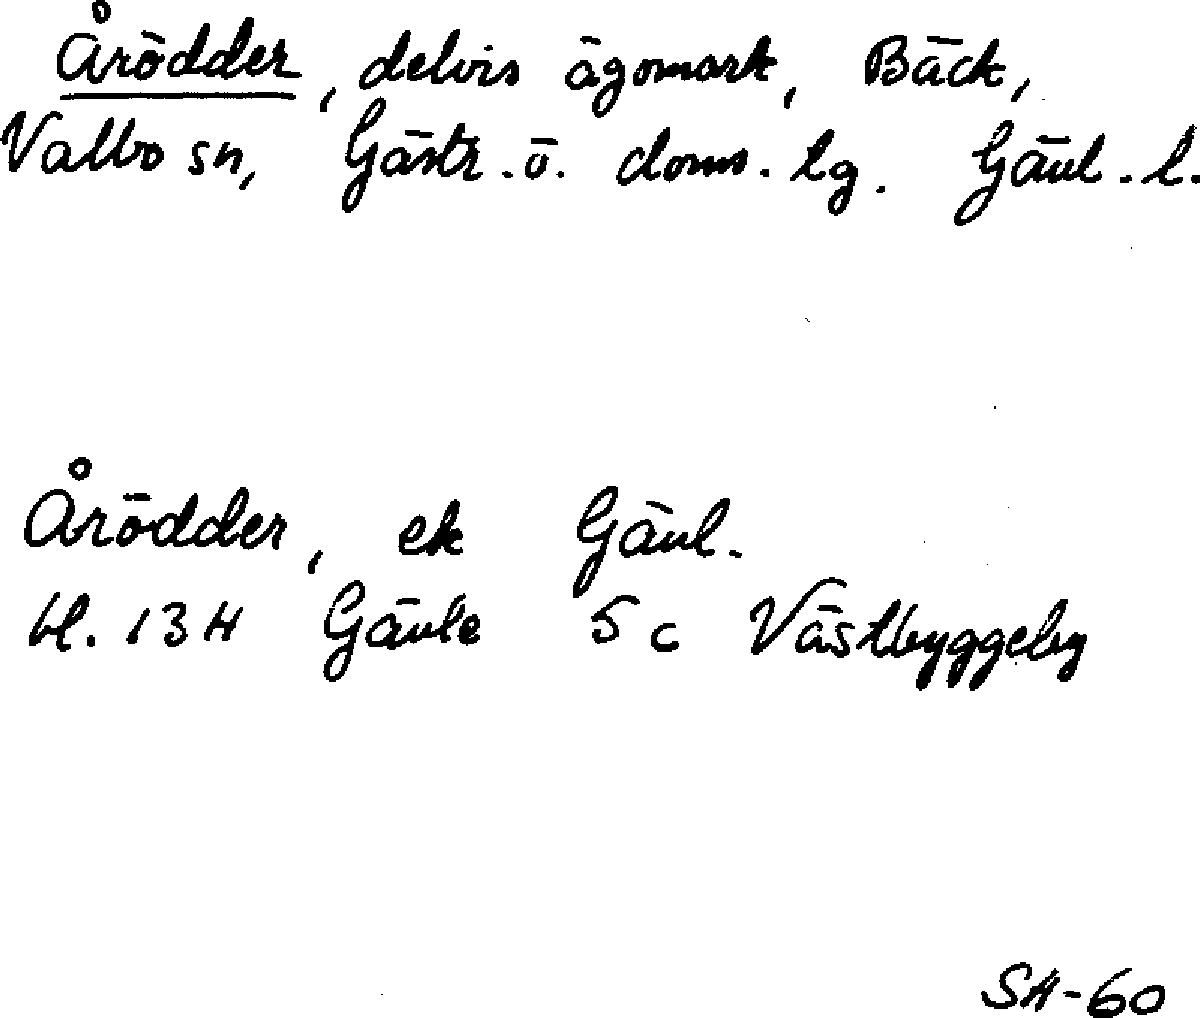 Årödder, delvis ägomark, Bäck,
Valbo sn, Gästr. ö. doms. lg. Gävl. l.
Årödder, ek Gävl.
bl. 13 H Gävle 5 c Västbyggeby
SH-60